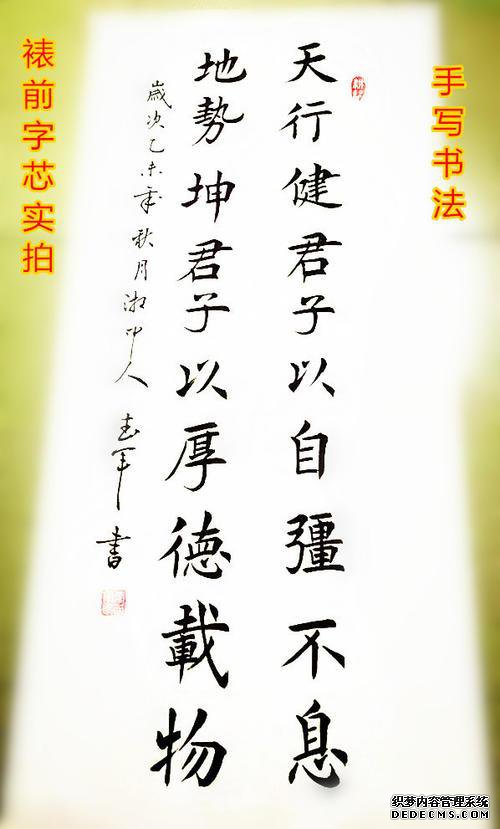 手写书法
天行健君子以自彊不息
地勢坤君子以厚德載物
歲次乙未年秋月湘中人書
裱前字芯实拍
织梦内容管理系统
DEDECMS.COM